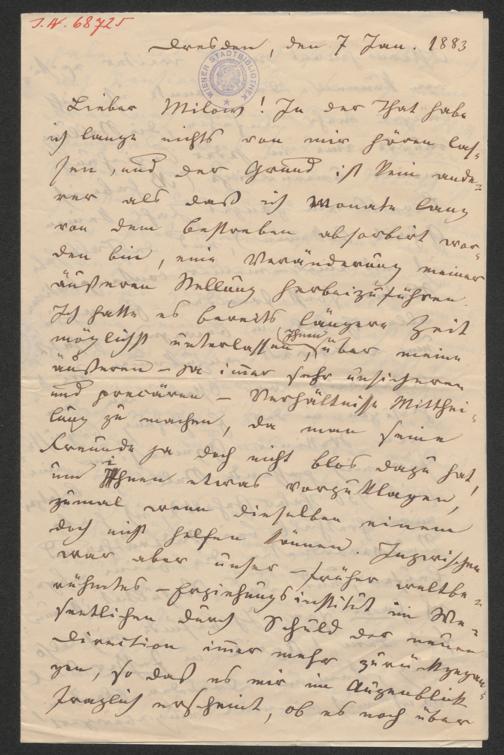 I. N. 68725
WIENER STADTBIBLIOTHEK
Dresden, den 7 Jan. 1883
Lieber Milow! In der That habe
ich lange nichts von mir hören las-
sen, und der Grund ist kein ande-
rer als daß ich Monate lang
von dem Bestreben absorbirt wor-
den bin, eine Veränderung meiner
äußeren Stellung herbeizuführen.
Ich hatte es bereits längere Zeit
möglichst unterlassen, Ihnen über meine
äußeren – da immer sehr unsicheren
und precären – Verhältnisse Mitthei-
lung zu machen, da man seine
Freunde ja doch nicht blos dazu hat,
um ihnen etwas vorzuklagen,
zumal wenn dieselben einem
doch nicht helfen können. Inzwischen
war aber unser – früher weltbe-
rühmtes – Erziehungsinstitut im We-
sentlichen durch Schuld der neuen
Direction immer mehr zurückgegan-
gen, so daß es mir im Augenblick
fraglich erscheint, ob es noch über